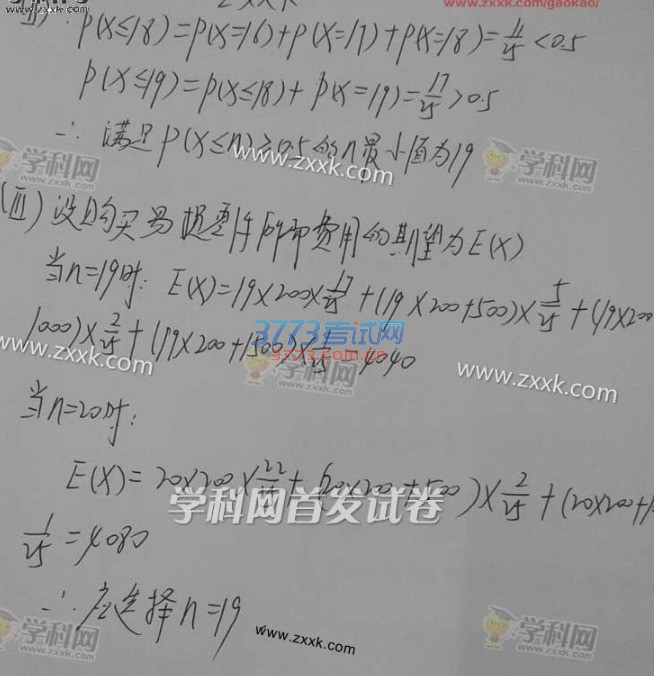 www.zxxk.com/gaokao/
P(X≤18)=P(X=16)+P(X=17)+P(X=18)=11/25<0.5
P(X≤19)=P(X≤18)+P(X=19)=17/25>0.5
∴ 满足P(X≤n)≥0.5的n最小值为19
学科网
www.zxxk.com
学科网
www.zxxk.com
(Ⅲ)设购买易损零件所需费用的期望为E(X)
当n=19时: E(X)=19×200×17/25+(19×200+500)×5/25+(19×200
1000)×2/25+(19×200+1500)×1/25=4040
3773考试网
3773.com.cn
学科网
www.zxxk.com
www.zxxk.com
当n=20时:
E(X)=20×200×22/25+(20×200+500)×2/25+(20×200+
学科网首发试卷
1/25=4080
∴应选择n=19
www.zxxk.com
学科网
www.zxxk.com
学科网
www.zxxk.com